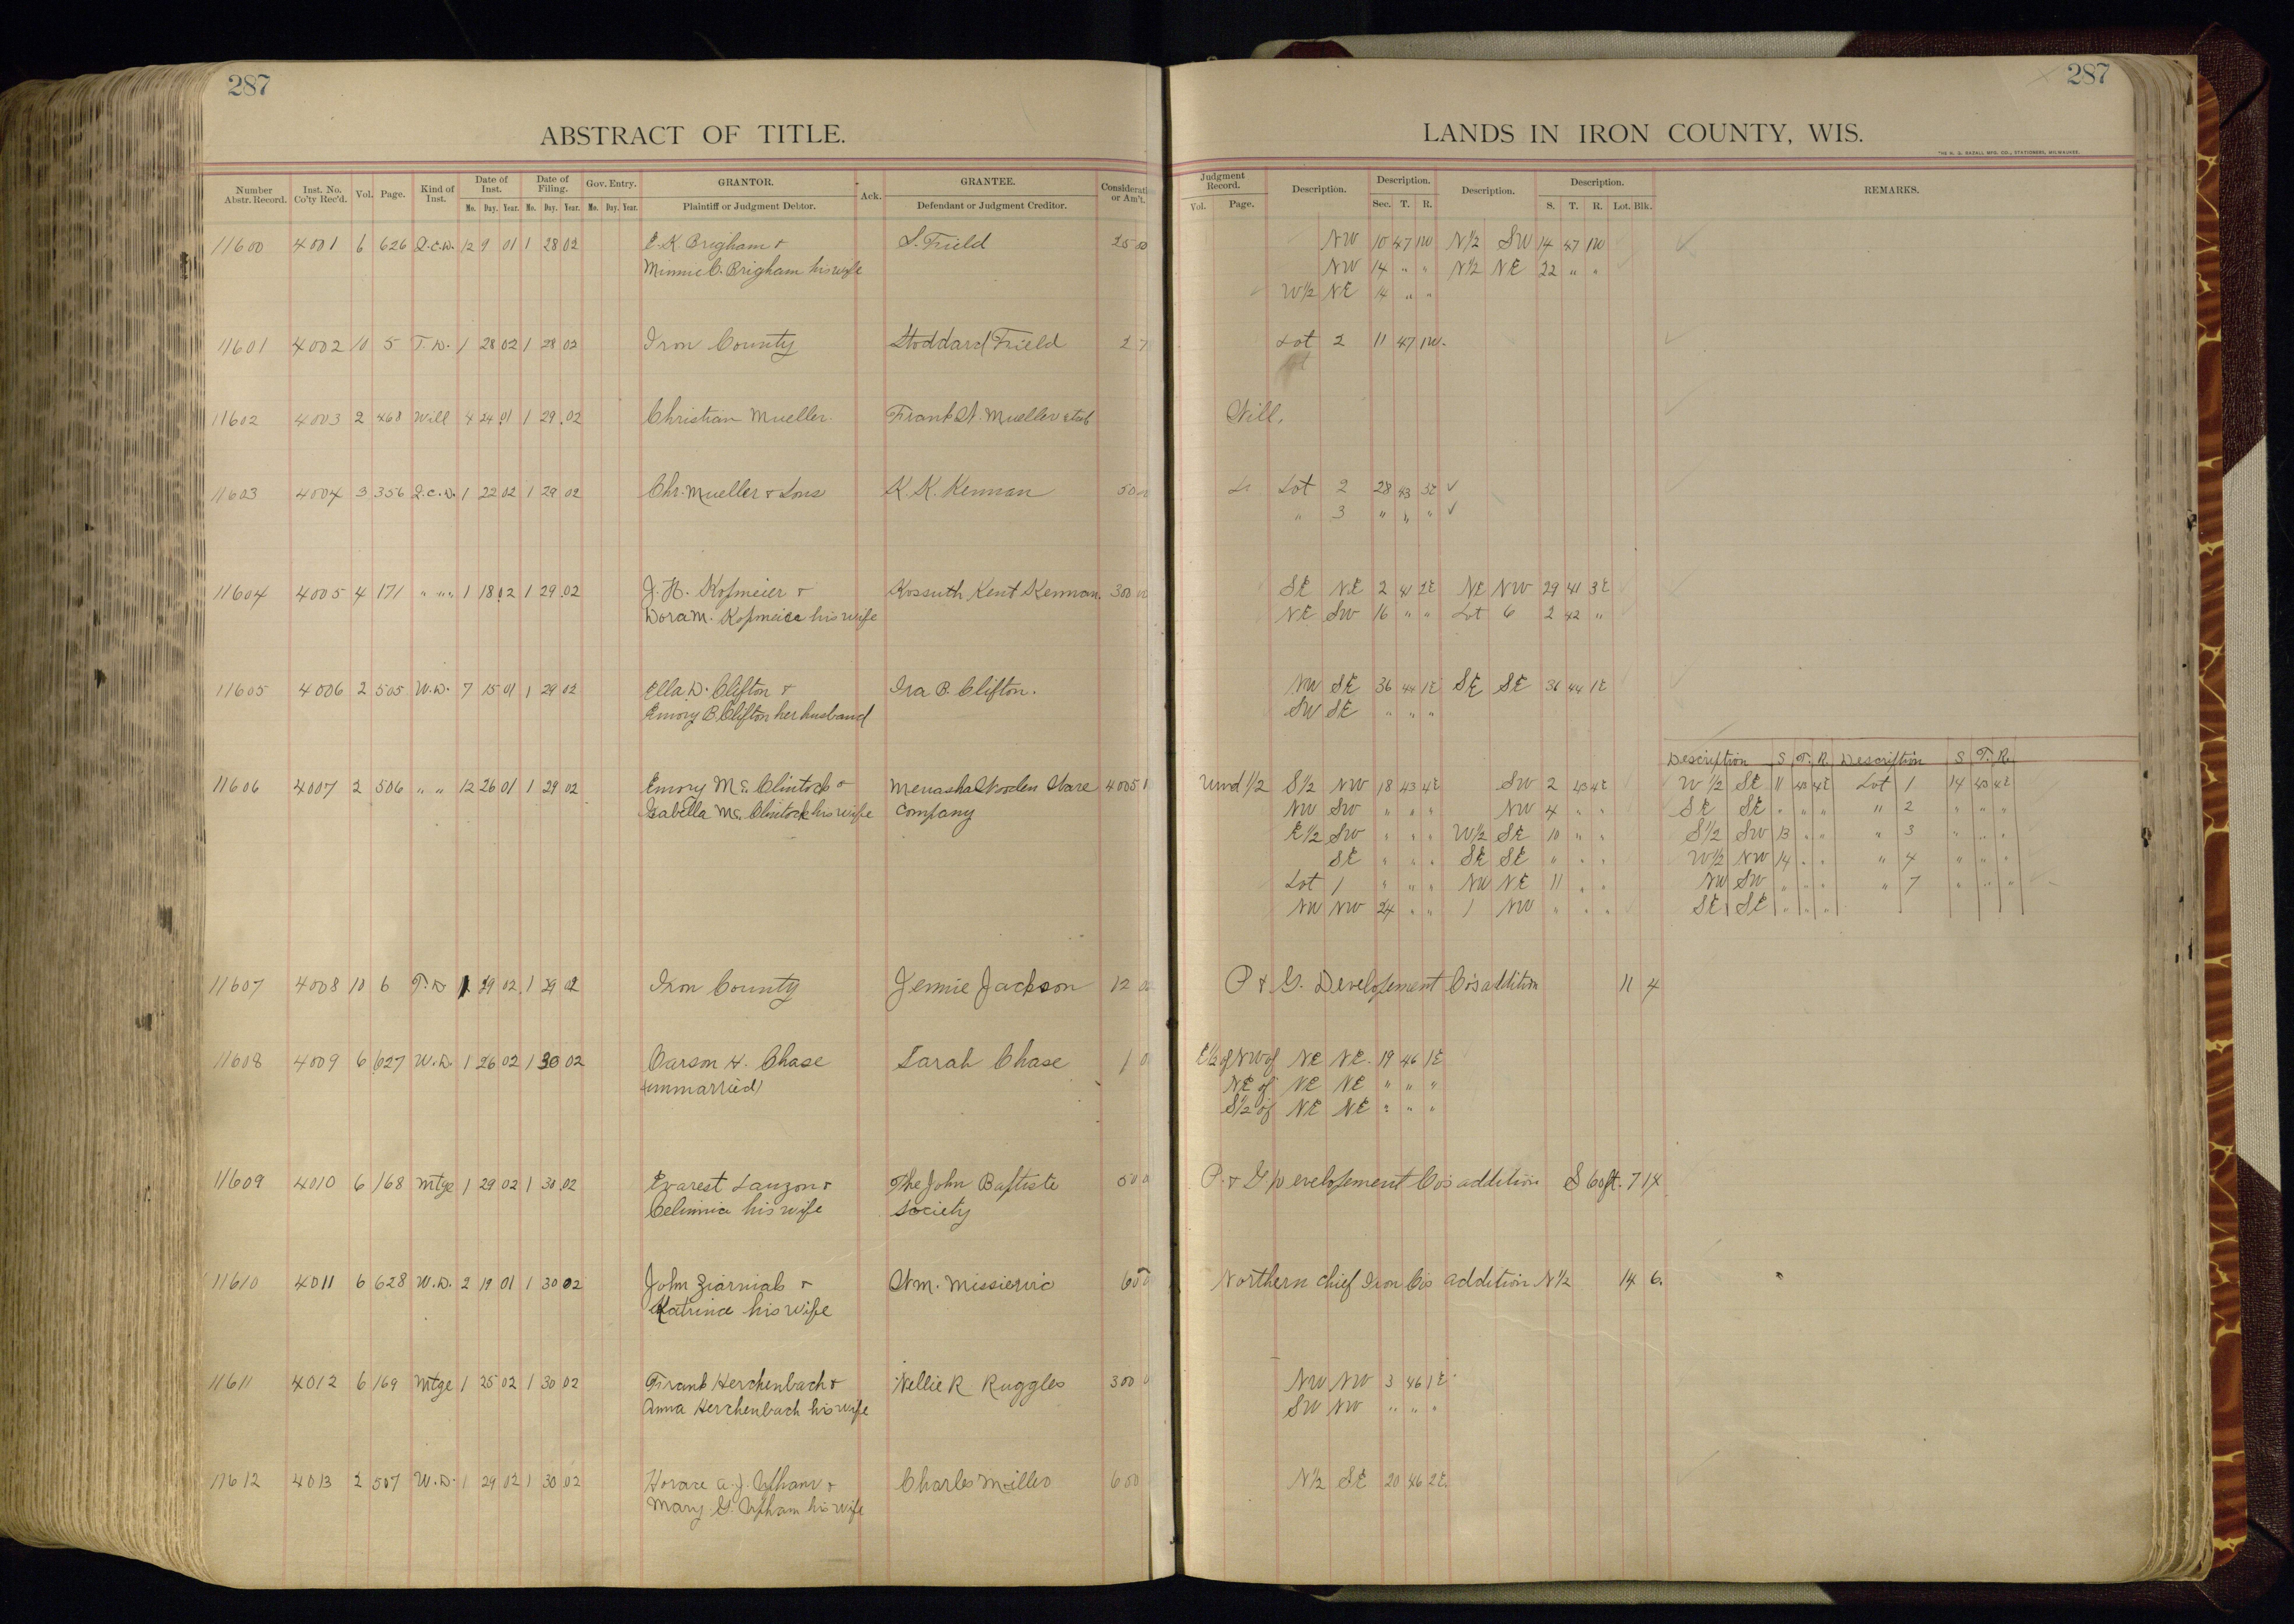 287
ABSTRACT OF TITLE.
Number Abstr. Record. Inst. No. Co'ty Rec'd. Vol. Page. Kind of Inst. Date of Inst. Mo. Day. Year. Date of Filing. Mo. Day. Year. Gov. Entry. Mo. Day. Year. GRANTOR. Plaintiff or Judgment Debtor. Ack. GRANTEE. Defendant or Judgment Creditor. Considerati or Am't.
11600 4001 6 626 Q.C.D. 12 9 01 1 28 02 E. K. Brigham & S. Field 25 00
Minnie C. Brigham his wife
11601 4002 10 5 T.D. 1 28 02 1 28 02 Iron County Stoddard Field 27
11602 4003 2 468 Will 4 24 01 1 29 02 Christian Mueller. Frank A. Mueller et al
11603 4004 3 356 Q.C.D. 1 22 02 1 29 02 Chr. Mueller & Sons K. K. Kennan 50
11604 4005 4 171 " " " 1 18 02 1 29 02 J. H. Kopmeier & Kossuth Kent Kennan 300 00
Dora M. Kopmeier his wife
11605 4006 2 505 W.D. 7 15 01 1 29 02 Ella D. Clifton & Ira B. Clifton.
Emory B. Clifton her husband
11606 4007 2 506 " " 12 26 01 1 29 02 Emory Mc Clintock & Menasha Wooden Ware 4005
Isabella Mc Clintock his wife Company
11607 4008 10 6 T.D 1 29 02 1 29 02 Iron County Jennie Jackson 12 00
11608 4009 6 627 W.D. 1 26 02 1 30 02 Carson H. Chase Sarah Chase 1 0
(unmarried)
11609 4010 6 168 Mtge 1 29 02 1 30 02 Evarest Lauzon & The John Baptiste 50 0
Celinnia his wife Society
11610 4011 6 628 W.D. 2 19 01 1 30 02 John Ziarniak & Wm.
Katrina his wife
11611 4012 6 169 Mtge 1 25 02 1 30 02 Frank Herchenbach & Nellie R. Ruggles 300 0
Anna Herchenbach his wife
11612 4013 2 507 W.D. 1 29 02 1 30 02 Horace A. J. Upham & Charles Miller 600
Mary G. Upham his wife
287
LANDS IN IRON COUNTY, WIS.
Judgment Record. Vol. Page. Description. Description. Sec. T. R. Description. Description. S. T. R. Lot. Blk. REMARKS.
NW 10 47 1W N½ SW 14 47 1W
NW 14 " " N½ NE 22 " "
W½ NE 14 " "
Lot 2 11 47 1W.
Will.
Lot 2 28 43 3E
" 3 " " "
SE NE 2 41 2E NE NW 29 41 3E
NE SW 16 " " Lot 6 2 42 "
NW SE 36 44 1E SE SE 36 44 1E
SW SE " " "
Description S T. R. Description S T. R.
Und 1/2 S½ NW 18 43 4E SW 2 43 4E W½ SE 11 43 4E Lot 1 14 43 4E
NW SW " " " NW 4 " " SE SE " " " " 2 " " "
E½ SW " " " W½ SE 10 " " S½ SW 13 " " " 3 " " "
SE " " " SE SE " " " W½ NW 14 " " " 4 " " "
Lot 1 " " " NW NE 11 " " NW SW " " " " 7 " " "
NW NW 24 " " 1 NW " " " SE SE " " "
P & G. Developement Co's addition 11 4
E½ of NW of NE NE. 19 46 1E
NE of NE NE " " "
S½ of NE NE " " "
P. & G Developement Co's addition S 60 ft. 7 14
Northern Chief Iron Co's addition N½ 14 6.
NW NW 3 46 1E
SW NW " " "
N½ SE 20 46 2E.